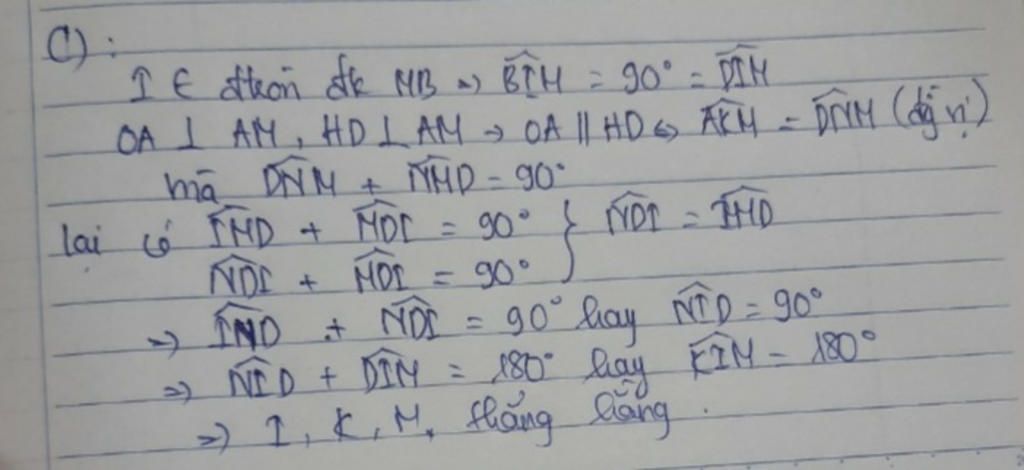 C):
I ∈ đtròn đk MB => BIM = 90° = DIM
OA ⊥ AM, HD ⊥ AM → OA // HD <=> AKM = DNM (đg vị)
mà DNM + NMD = 90°
lại có IMD + MDI = 90° } NDI = IMD
NDI + MDI = 90°
=> IND + NDI = 90° hay NID = 90°
=> NID + DIM = 180° hay KIM = 180°
=> I, K, M, thẳng hàng.